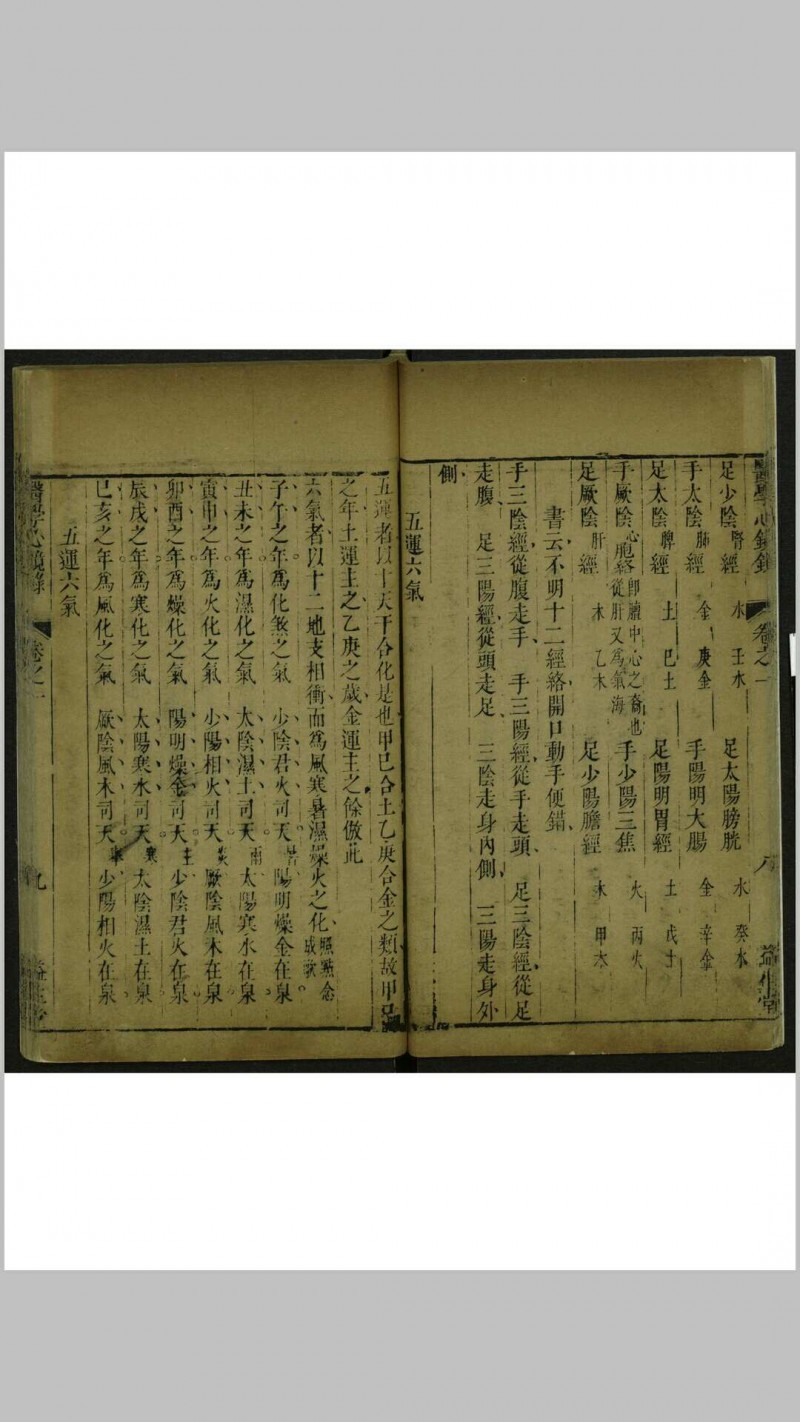 醫學心鏡錄 卷之一 八 益生堂
足少陰腎經 水 壬水 足太陽膀胱 水 癸水
手太陰肺經 金 庚金 手陽明大腸 金 辛金
足太陰脾經 土 巳土 足陽明胃經 土 戊土
手厥陰心胞絡即膻中心之裔也從肝又為氣海 手少陽三焦 火 丙火
足厥陰肝經 木 乙木 足少陽膽經 木 甲木
書云不明十二經絡開口動手便錯
手三陰經從腹走手 手三陽經從手走頭 足三陰經從足
走腹 足三陽經從頭走足 三陰走身內側 三陽走身外
側
五運六氣
五運者以十天干合化是也甲巳合土乙庚合金之類故甲巳
之年土運主之乙庚之歲金運主之餘倣此
六氣者以十二地支相衝而為風寒暑濕燥火之化
子午之年為化煞之氣 少陰君火司天 陽明燥金在泉
丑未之年為濕化之氣 太陰濕土司天 雨 太陽寒水在泉
寅申之年為火化之氣 少陽相火司天 厥陰風木在泉
卯酉之年為燥化之氣 陽明燥金司天 少陰君火在泉
辰戌之年為寒化之氣 太陽寒水司天 寒 太陰濕土在泉
巳亥之年為風化之氣 厥陰風木司天 少陽相火在泉
五運六氣
醫學心鏡錄 卷之一 九 益生堂